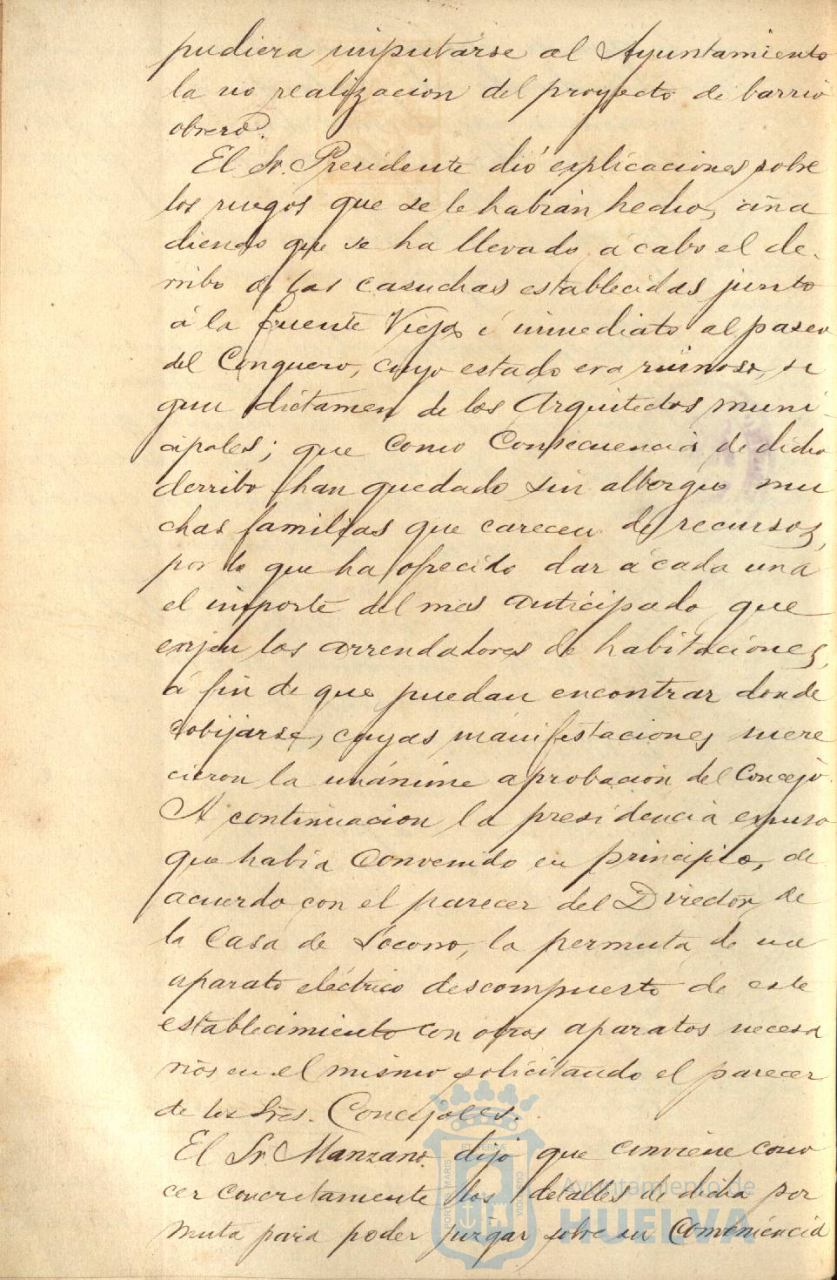 pudiera imputarse al Ayuntamiento
la no realizacion del proyecto de barrio
obrero.
El Sr. Presidente dió explicaciones sobre
los ruegos que se le habian hecho, aña
diendo que se ha llevado á cabo el de-
rribo de las casuchas establecidas junto
á la Fuente Vieja é inmediato al paseo
del Conquero, cuyo estado era ruinoso, se
gun dictamen de los Arquitectos muni-
cipales; que como Consecuencia de dicho
derribo han quedado sin albergue mu
chas familias que carecen de recursos,
por lo que ha ofrecido dar á cada una
el importe del mes anticipado que
exijen los arrendadores de habitaciones,
á fin de que puedan encontrar donde
cobijarse, cuyas manifestaciones mere
cieron la unánime aprobacion del Concejo.
A continuacion la presidencia expuso
que habia Convenido en principio, de
acuerdo con el parecer del Director de
la Casa de Socorro, la permuta de un
aparato eléctrico descompuesto de este
establecimiento con otros aparatos necesa
rios en el mismo solicitando el parecer
de los Sres. Concejales.
El Sr. Manzano dijo que conviene cono
cer concretamente los detalles de dicha per
muta para poder juzgar sobre su Conveniencia
Ayuntamiento de
HUELVA